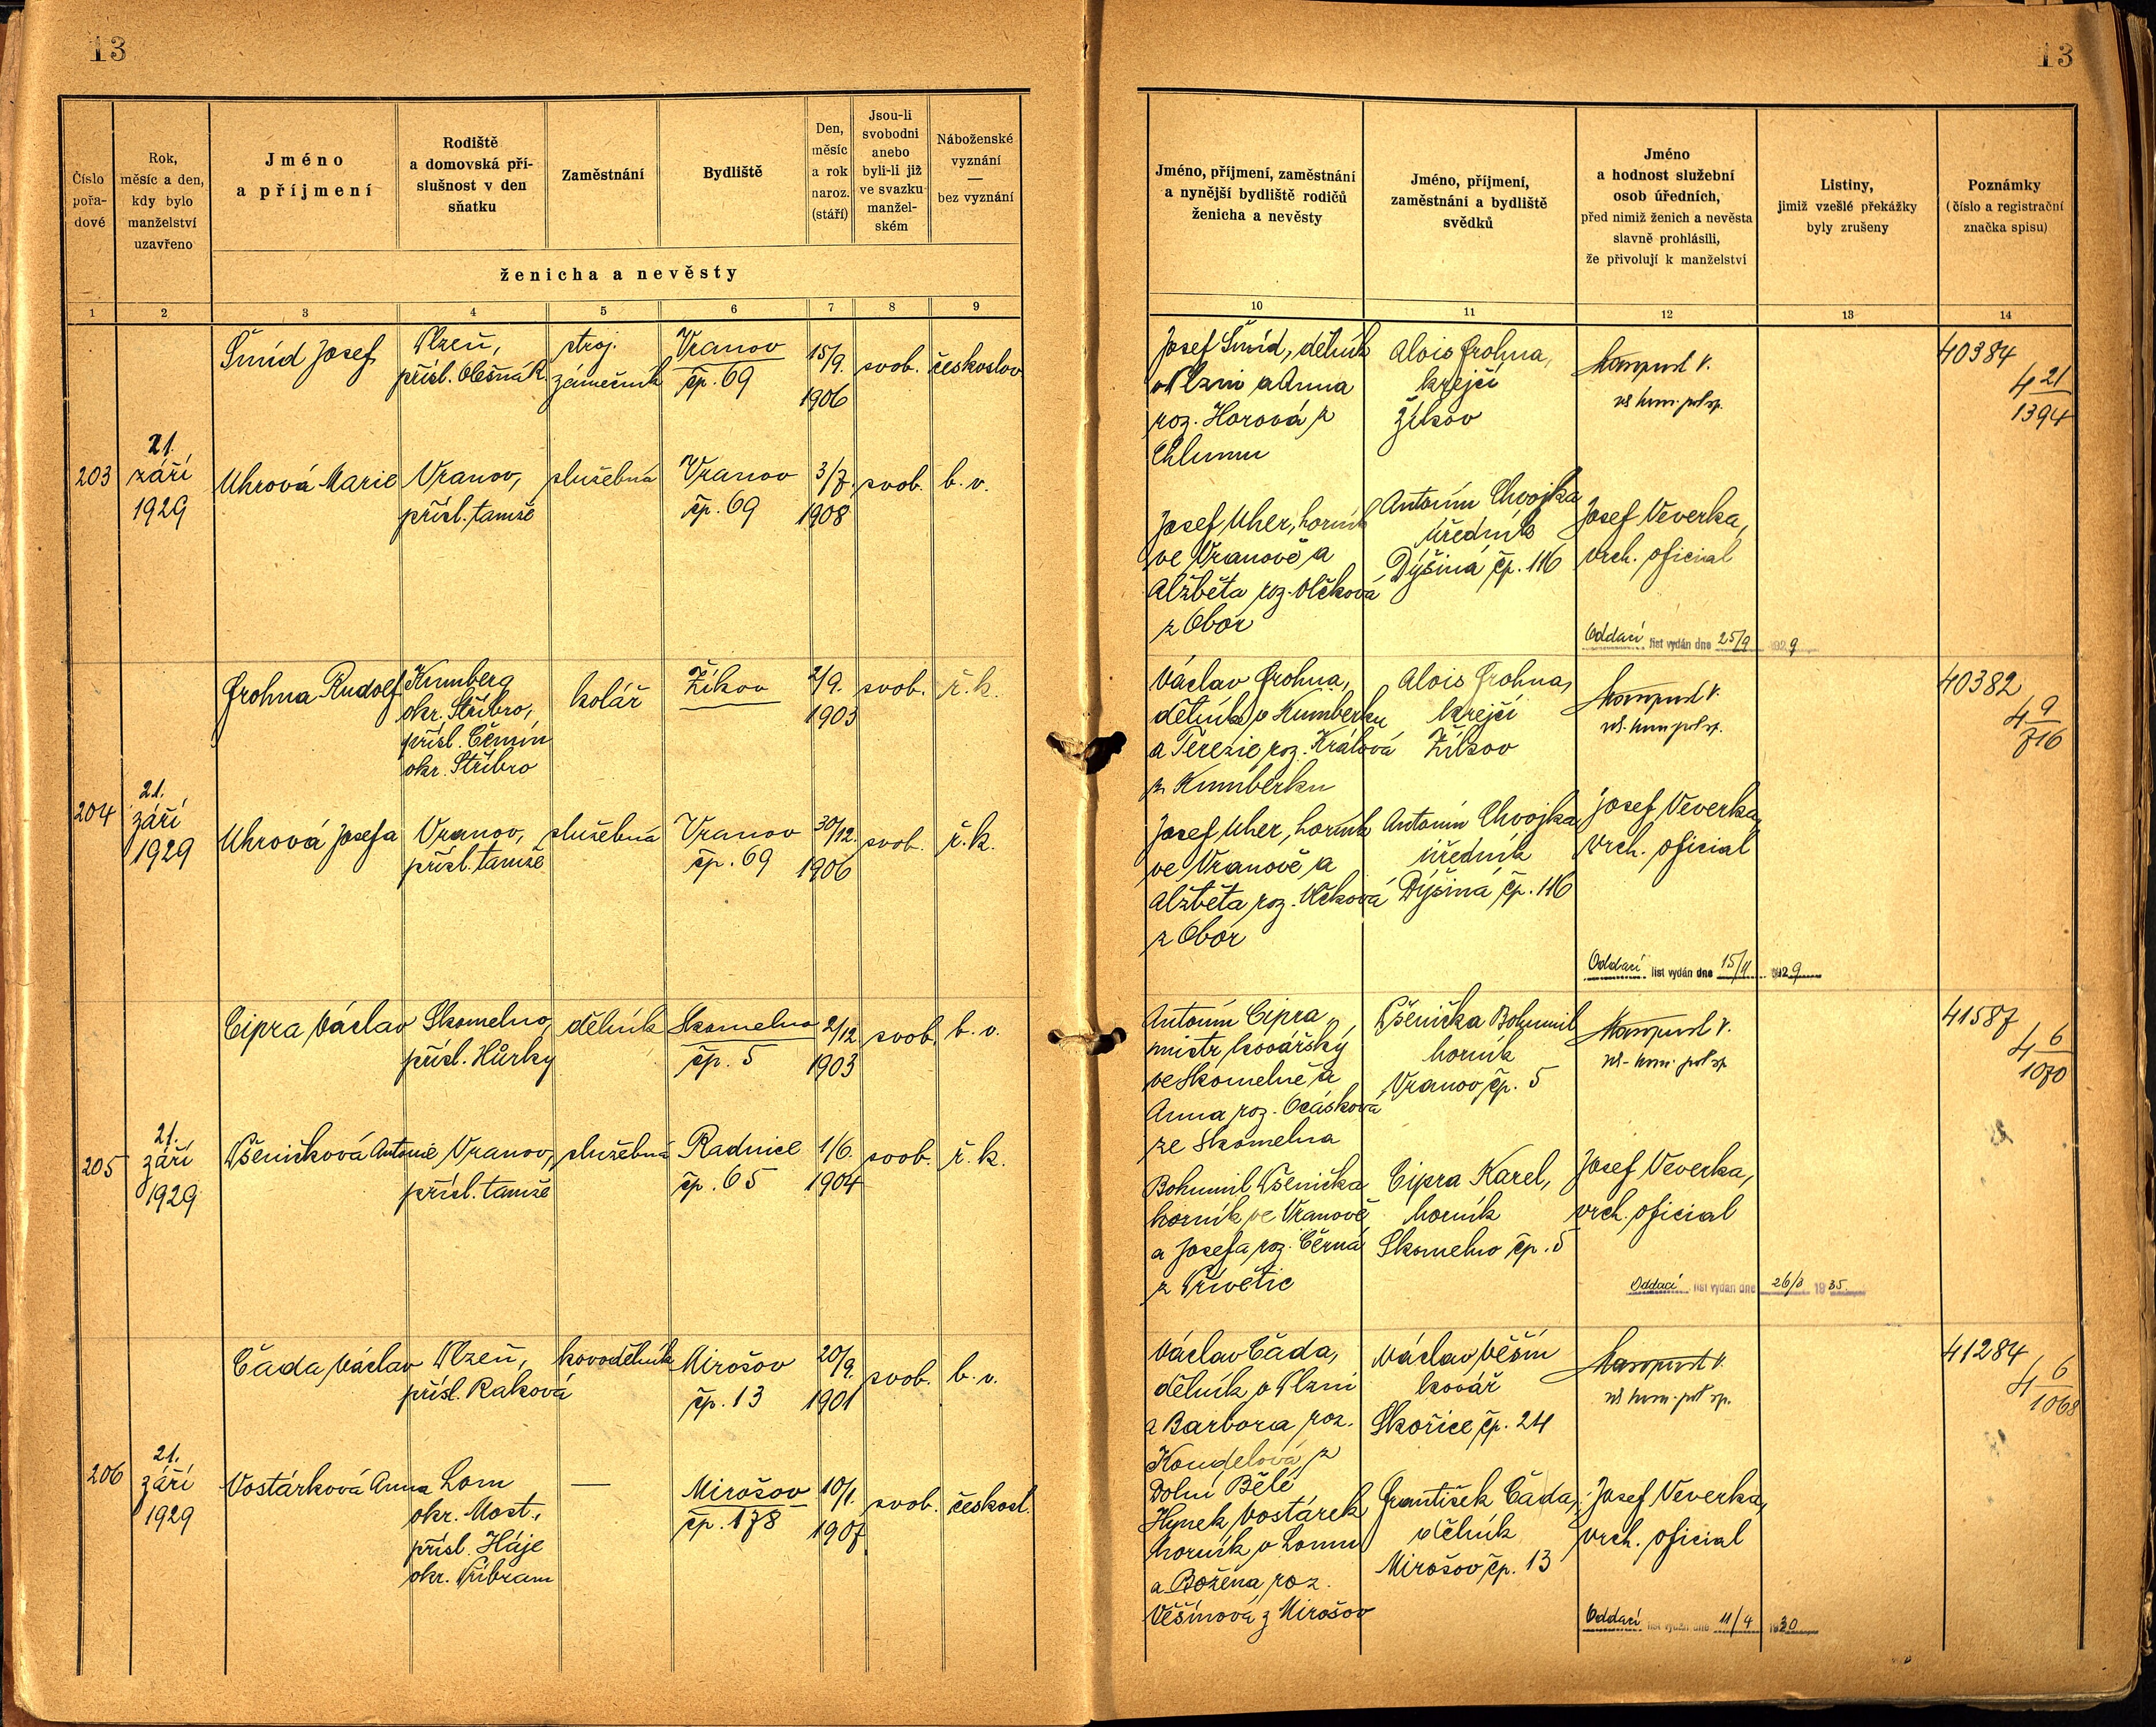 13
Číslo pořa-dové
Rok, měsíc a den, kdy bylo manželství uzavřeno
Jméno a příjmení
Rodiště a domovská pří-slušnost v den sňatku
Zaměstnání
Bydliště
Den, měsíc a rok naroz. (stáří)
Jsou-li svobodni anebo byli-li již ve svazku manžel-ském
Náboženské vyznání — bez vyznání
ženicha a nevěsty
1 2 3 4 5 6 7 8 9
Šmíd Josef
Plzeň,
přísl.
stroj.
zámečník
Vranov
čp. 69
15/9.
1906
svob.
českoslov
203
21.
září
1929
Uhrová Marie
Vranov,
přísl. tamže
služebná
Vranov
čp. 69
3/7.
1908
svob.
b. v.
Frohna Rudolf
Kumberg
okr. Stříbro,
přísl. Čemín
okr. Stříbro
kolář
Žikov
2/9.
1903
svob.
ř. k.
204
21.
září
1929
Uhrová Josefa
Vranov,
přísl. tamže
služebná
Vranov
čp. 69
30/12.
1906
svob.
ř. k.
Cipra Václav
Skomelno,
přísl. Hůrky
dělník
Skomelno
čp. 5
2/12
1903
svob.
b. v.
205
21.
září
1929
Pšeničková Antonie
Vranov,
přísl. tamže
služebná
Radnice
čp. 65
1/6.
1904
svob.
ř. k.
Čada Václav
Plzeň,
přísl. Raková
kovodělník
Mirošov
čp. 13
20/9.
1901
svob.
b. v.
206
21.
září
1929
Vostárková Anna
Lom
okr. Most,
přísl. Háje
okr. Příbram
—
Mirošov
čp. 178
10/1.
1907
svob.
českosl.
13
Jméno, příjmení, zaměstnání a nynější bydliště rodičů ženicha a nevěsty
Jméno, příjmení, zaměstnání a bydliště svědků
Jméno a hodnost služební osob úředních, před nimiž ženich a nevěsta slavně prohlásili, že přivolují k manželství
Listiny, jimiž vzešlé překážky byly zrušeny
Poznámky (číslo a registrační značka spisu)
10 11 12 13 14
Josef Šmíd, dělník
v Plzni a Anna
roz. Horová z
Chlumu
Alois Frohna,
krejčí
Žikov
40384
4 21/1394
Josef Uher, horník
ve Vranově a
Alžběta roz. Vlčková
z Obor
Antonín Chvojka
úředník
Dýšina čp. 116
Josef Veverka,
vrch. oficial
Oddací list vydán dne 25/9 1929
Václav Frohna,
dělník v Kumberku
a Terezie roz. Králová
z Kumberku
Alois Frohna,
krejčí
Žikov
40382
4 9/716
Josef Uher, horník
ve Vranově a
Alžběta roz. Vlčková
z Obor
Antonín Chvojka
úředník
Dýšina čp. 116
Josef Veverka,
vrch. oficial
Oddací list vydán dne 15/11 1929
Antonín Cipra,
mistr kovářský
ve Skomelně a
Anna roz. Ocásková
ze Skomelna
Pšenička Bohumil
horník
Vranov čp. 5
41587
4 6/1070
Bohumil Pšenička
horník ve Vranově
a Josefa roz. Černá
z Přívětic
Cipra Karel,
horník
Skomelno čp. 5
Josef Veverka,
vrch. oficial
Oddací list vydán dne 26/8 1935
Václav Čada,
dělník v Plzni
a Barbora roz.
Koudelová z
Dolní Bělé
Václav Věšín
kovář
Skořice čp. 24
41284
4 6/1068
Hynek Vostárek
horník v Lomu
a Božena roz.
Věšínová z Mirošov
František Čada,
dělník
Mirošov čp. 13
Josef Veverka,
vrch. oficial
Oddací list vydán dne 11/4 1930